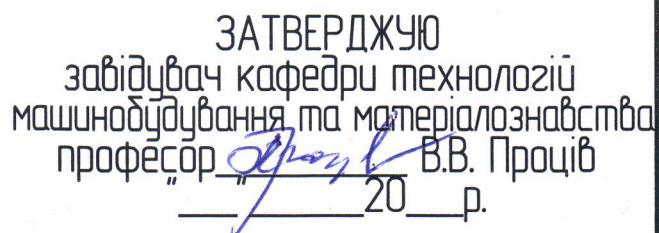 ЗАТВЕРДЖУЮ
завідувач кафедри технологій
машинобудування та матеріалознавства
професор__________ В.В. Проців
"___"________20___р.